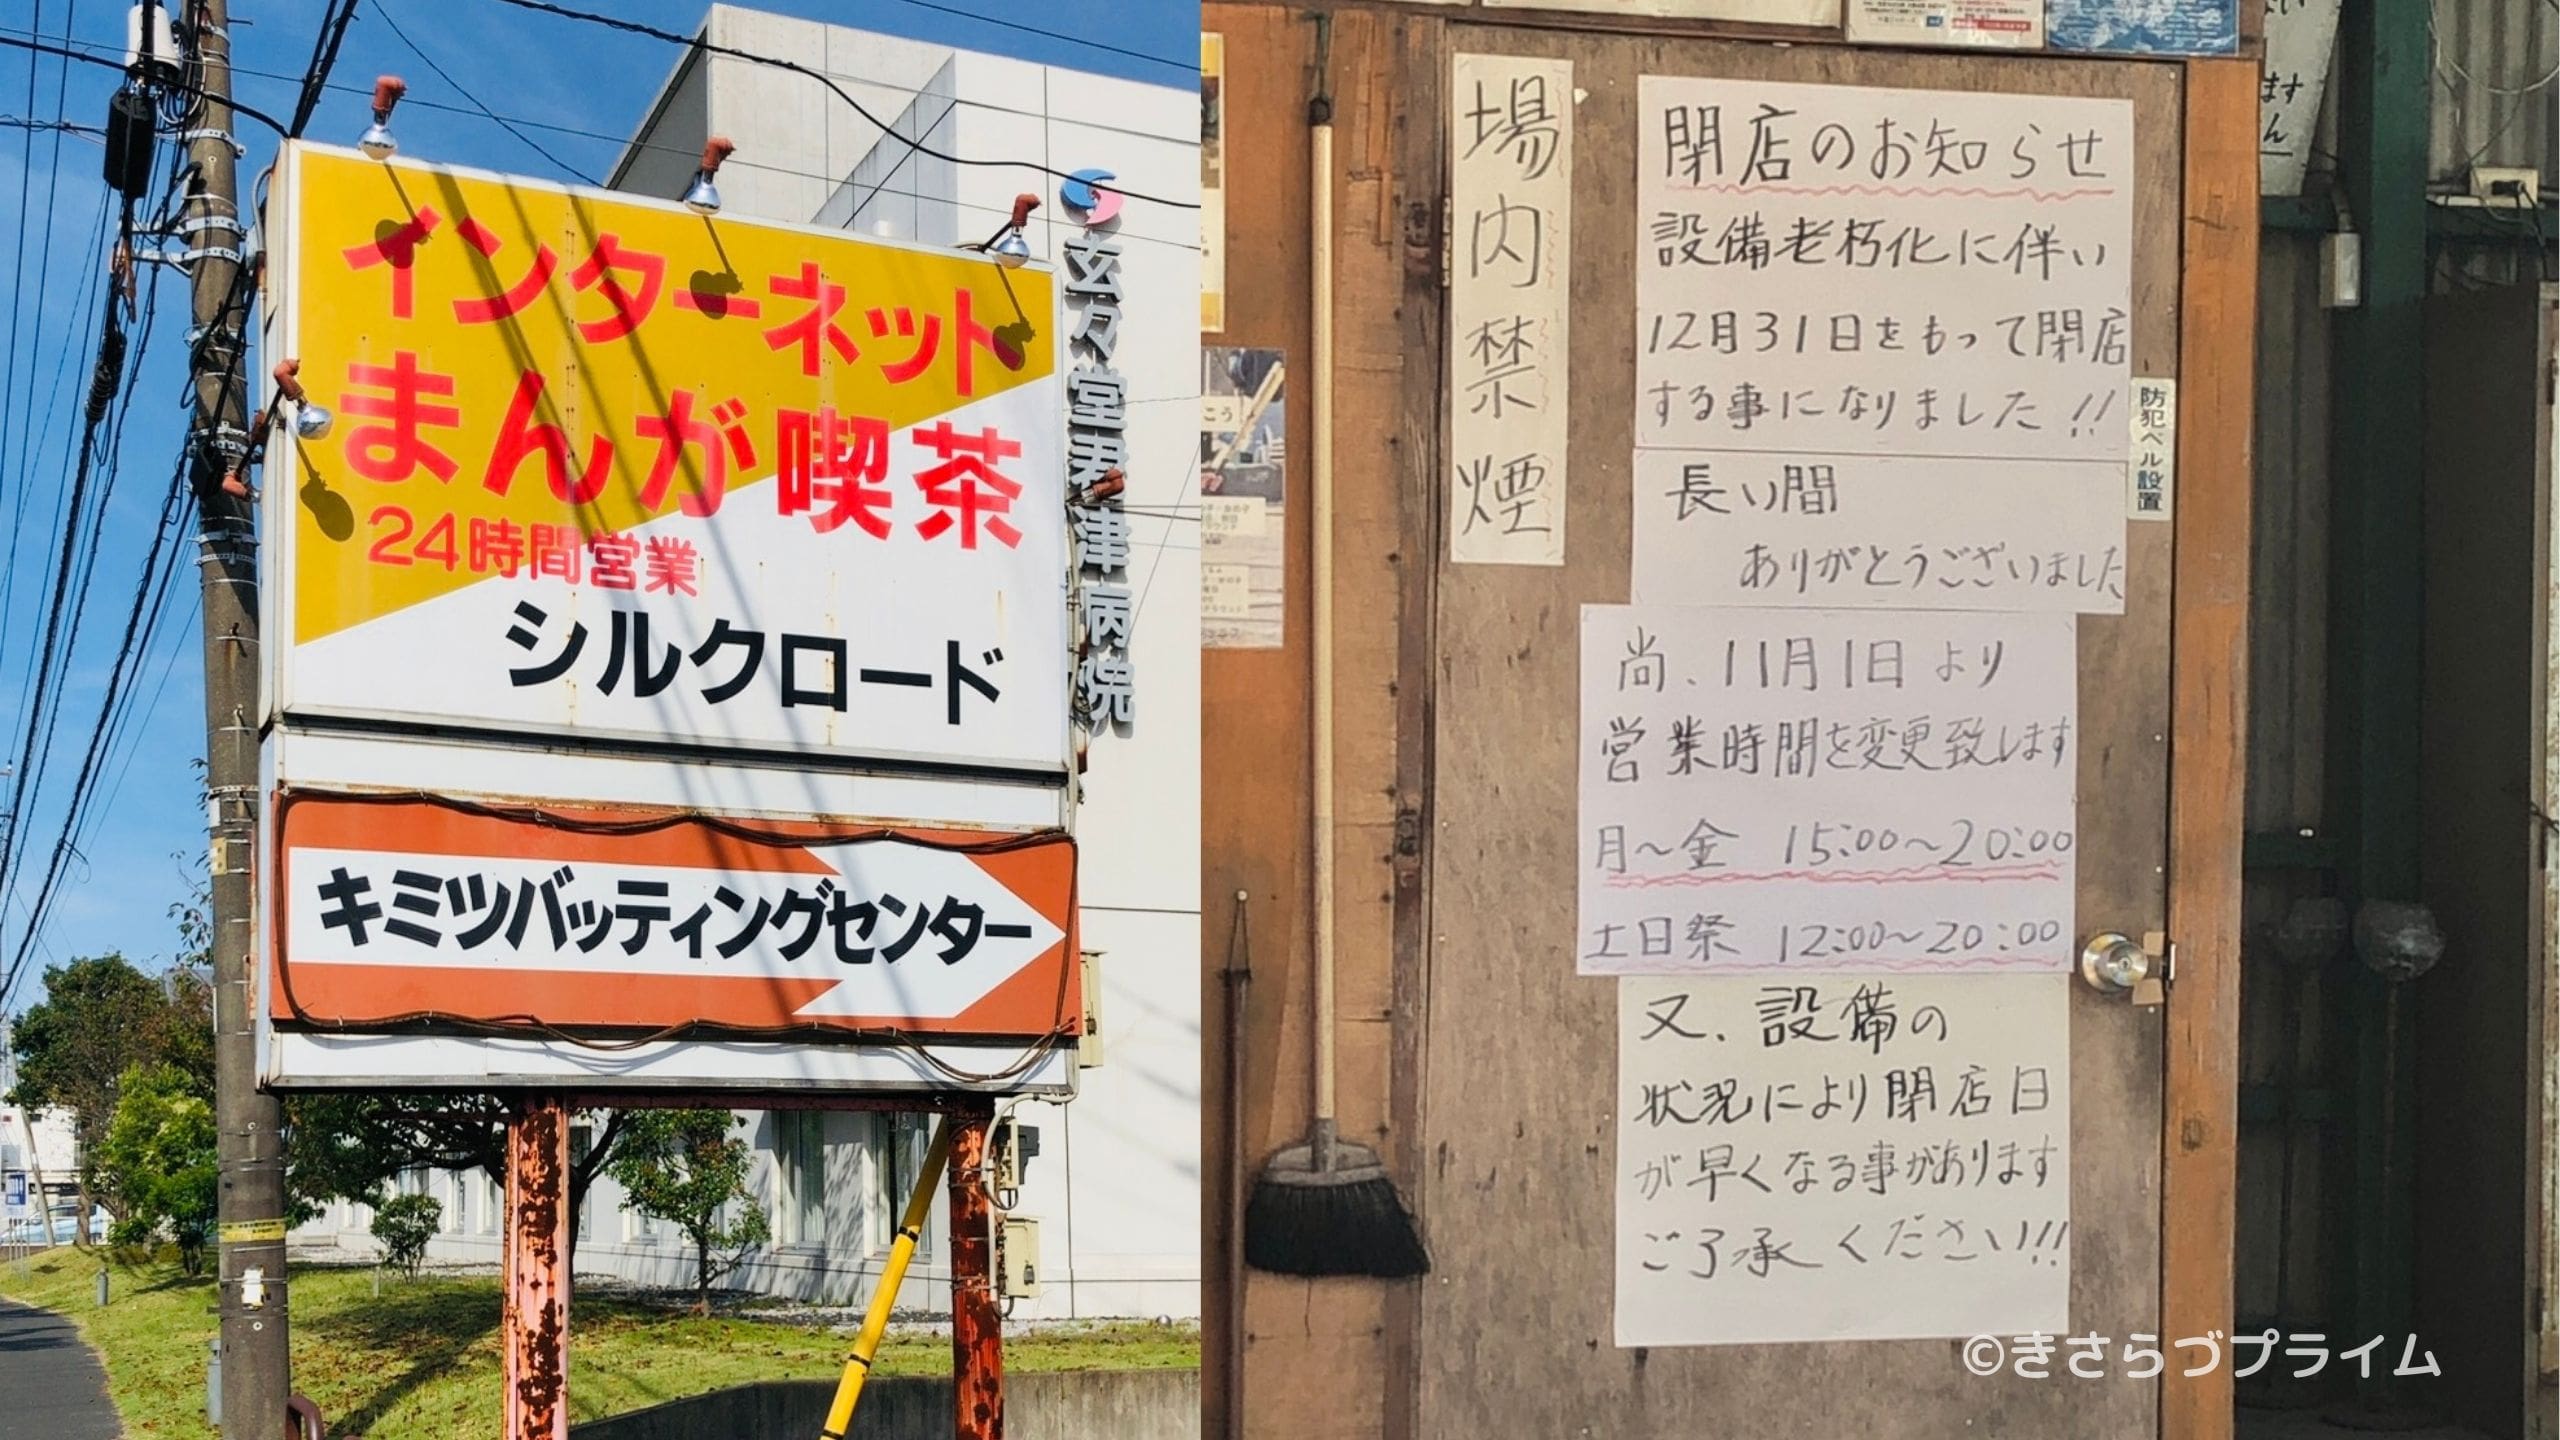 インターネット
まんが喫茶
24時間営業
シルクロード
キミツバッティングセンター
玄々堂君津病院
場内禁煙
閉店のお知らせ
設備老朽化に伴い
12月31日をもって閉店
する事になりました!!
長い間
ありがとうございました
尚、11月1日より
営業時間を変更致します
月〜金 15:00〜20:00
土日祭 12:00〜20:00
又、設備の
状況により閉店日
が早くなる事があります
ご了承ください!!
防犯ベル設置
©きさらづプライム